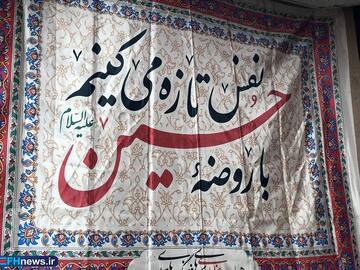 نفس تازه می کنیم
با روضهٔ حسین علیه‌السلام
FHnews.ir